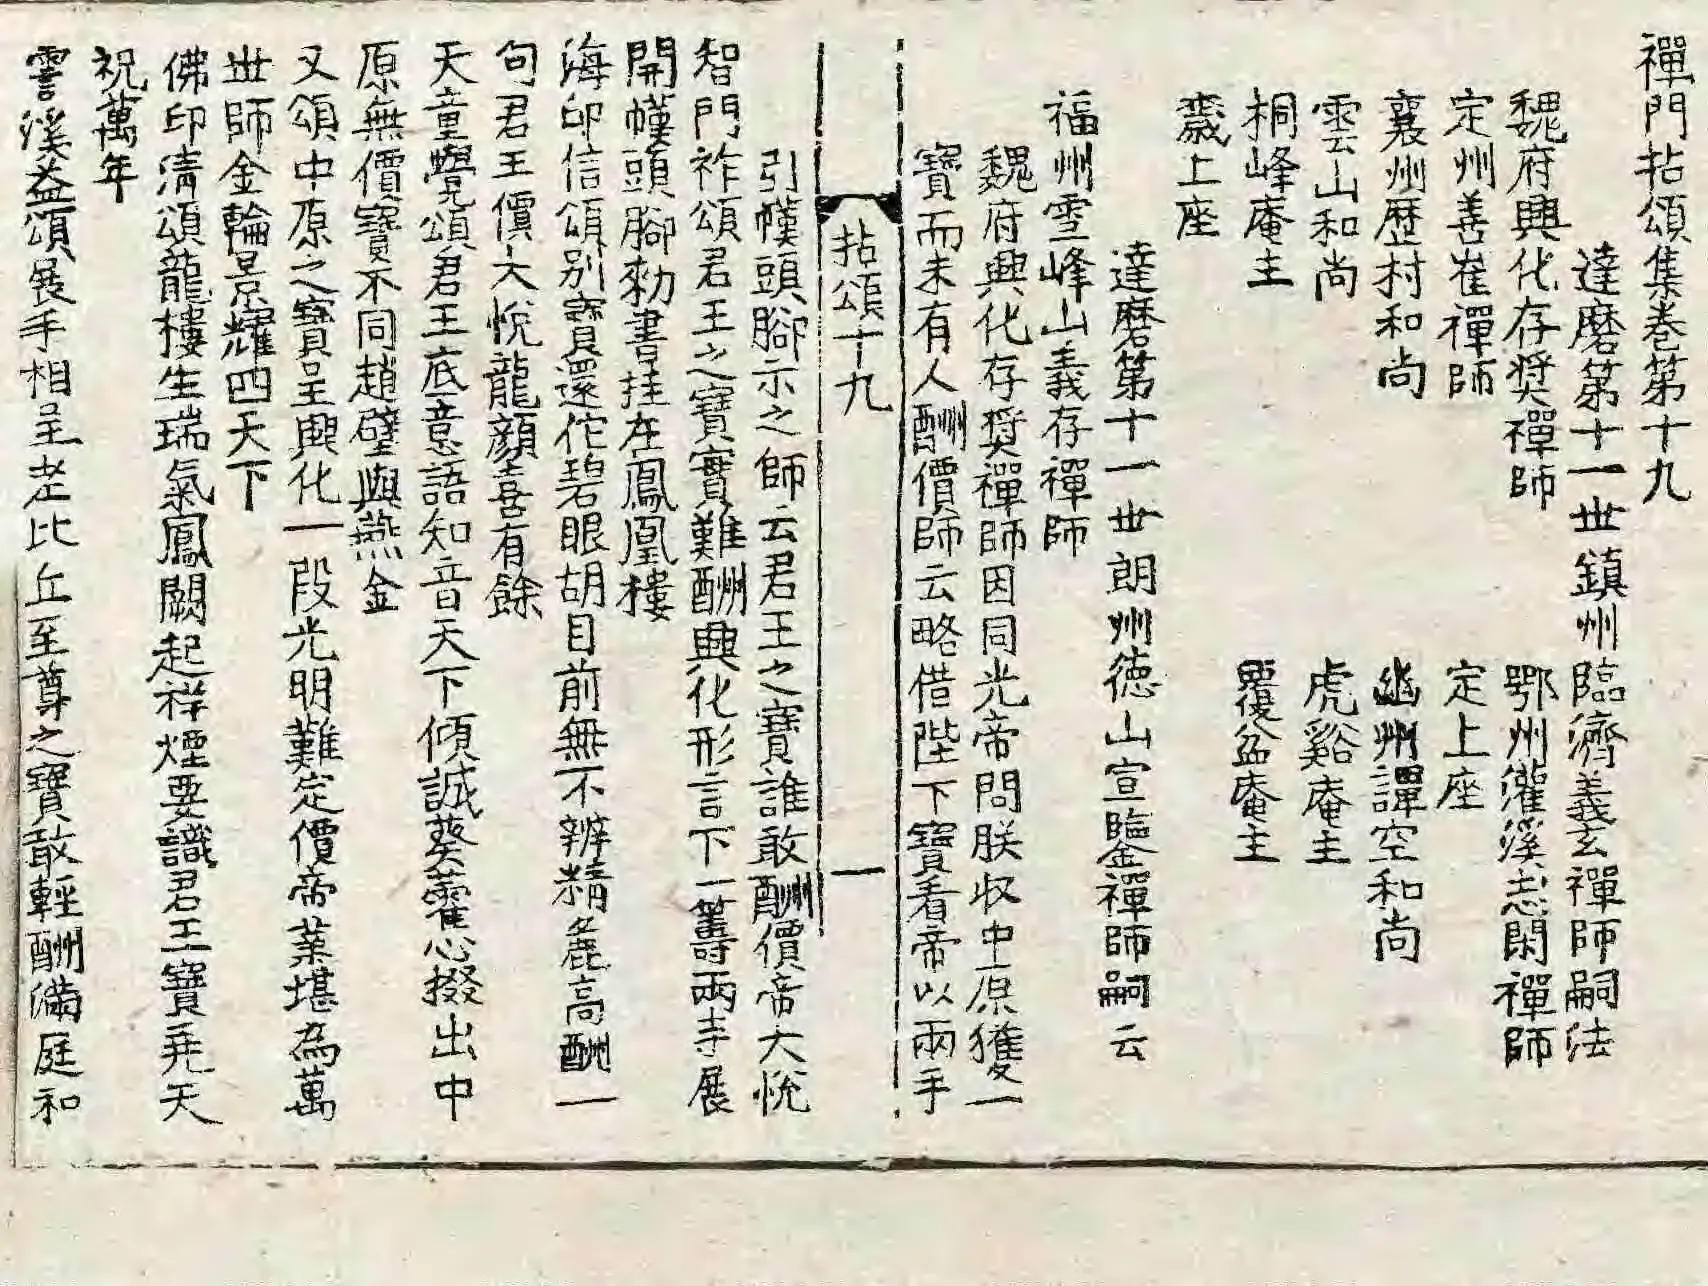 禪門拈頌集卷第十九
達磨第十一世鎮州臨濟義玄禪師嗣法
魏府興化存獎禪師 鄂州灌溪志閑禪師
定州善崔禪師 定上座
襄州歷村和尚 幽州譚空和尚
雲山和尚 虎谿庵主
桐峰庵主 覆盆庵主
歲上座
達磨第十一世朗州德山宣鑒禪師嗣云
福州雪峰山義存禪師
魏府興化存獎禪師因同光帝問朕收中原獲一
寶而未有人酬價師云略借陛下寶看帝以兩手
拈頌十九 一
引幞頭腳示之師云君王之寶誰敢酬價帝大悅
智門祚頌君王之寶實難酬興化形言下一籌兩手展
開幞頭腳勑書挂在鳳凰樓
海印信頌別寶還佗碧眼胡目前無不辨精麁高酬一
句君王價大悅龍顏喜有餘
天童覺頌君王底意語知音天下傾誠葵藿心掇出中
原無價寶不同趙璧與燕金
又頌中原之寶呈興化一段光明難定價帝業堪為萬
世師金輪景耀四天下
佛印清頌龍樓生瑞氣鳳闕起祥煙要識君王寶堯天
祝萬年
雲溪益頌展手相呈老比丘至尊之寶敢輕酬滿庭和